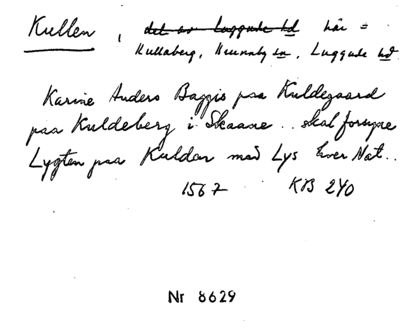 Kullen, det av Luggude hd här =
Kullaberg, Brunnby sn, Luggude hd.
Karine Anders Baggis paa Kuldegaard
paa Kuldeberg i Skaane .. skal forsyne
Lygten paa Kuldan med Lys hver Nat..
1567 KB 240
Nr 8629